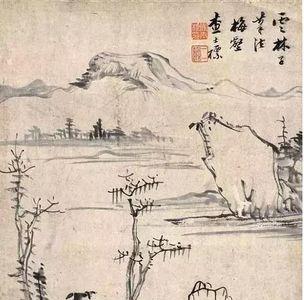 雲林子
筆法
梅壑
查士標